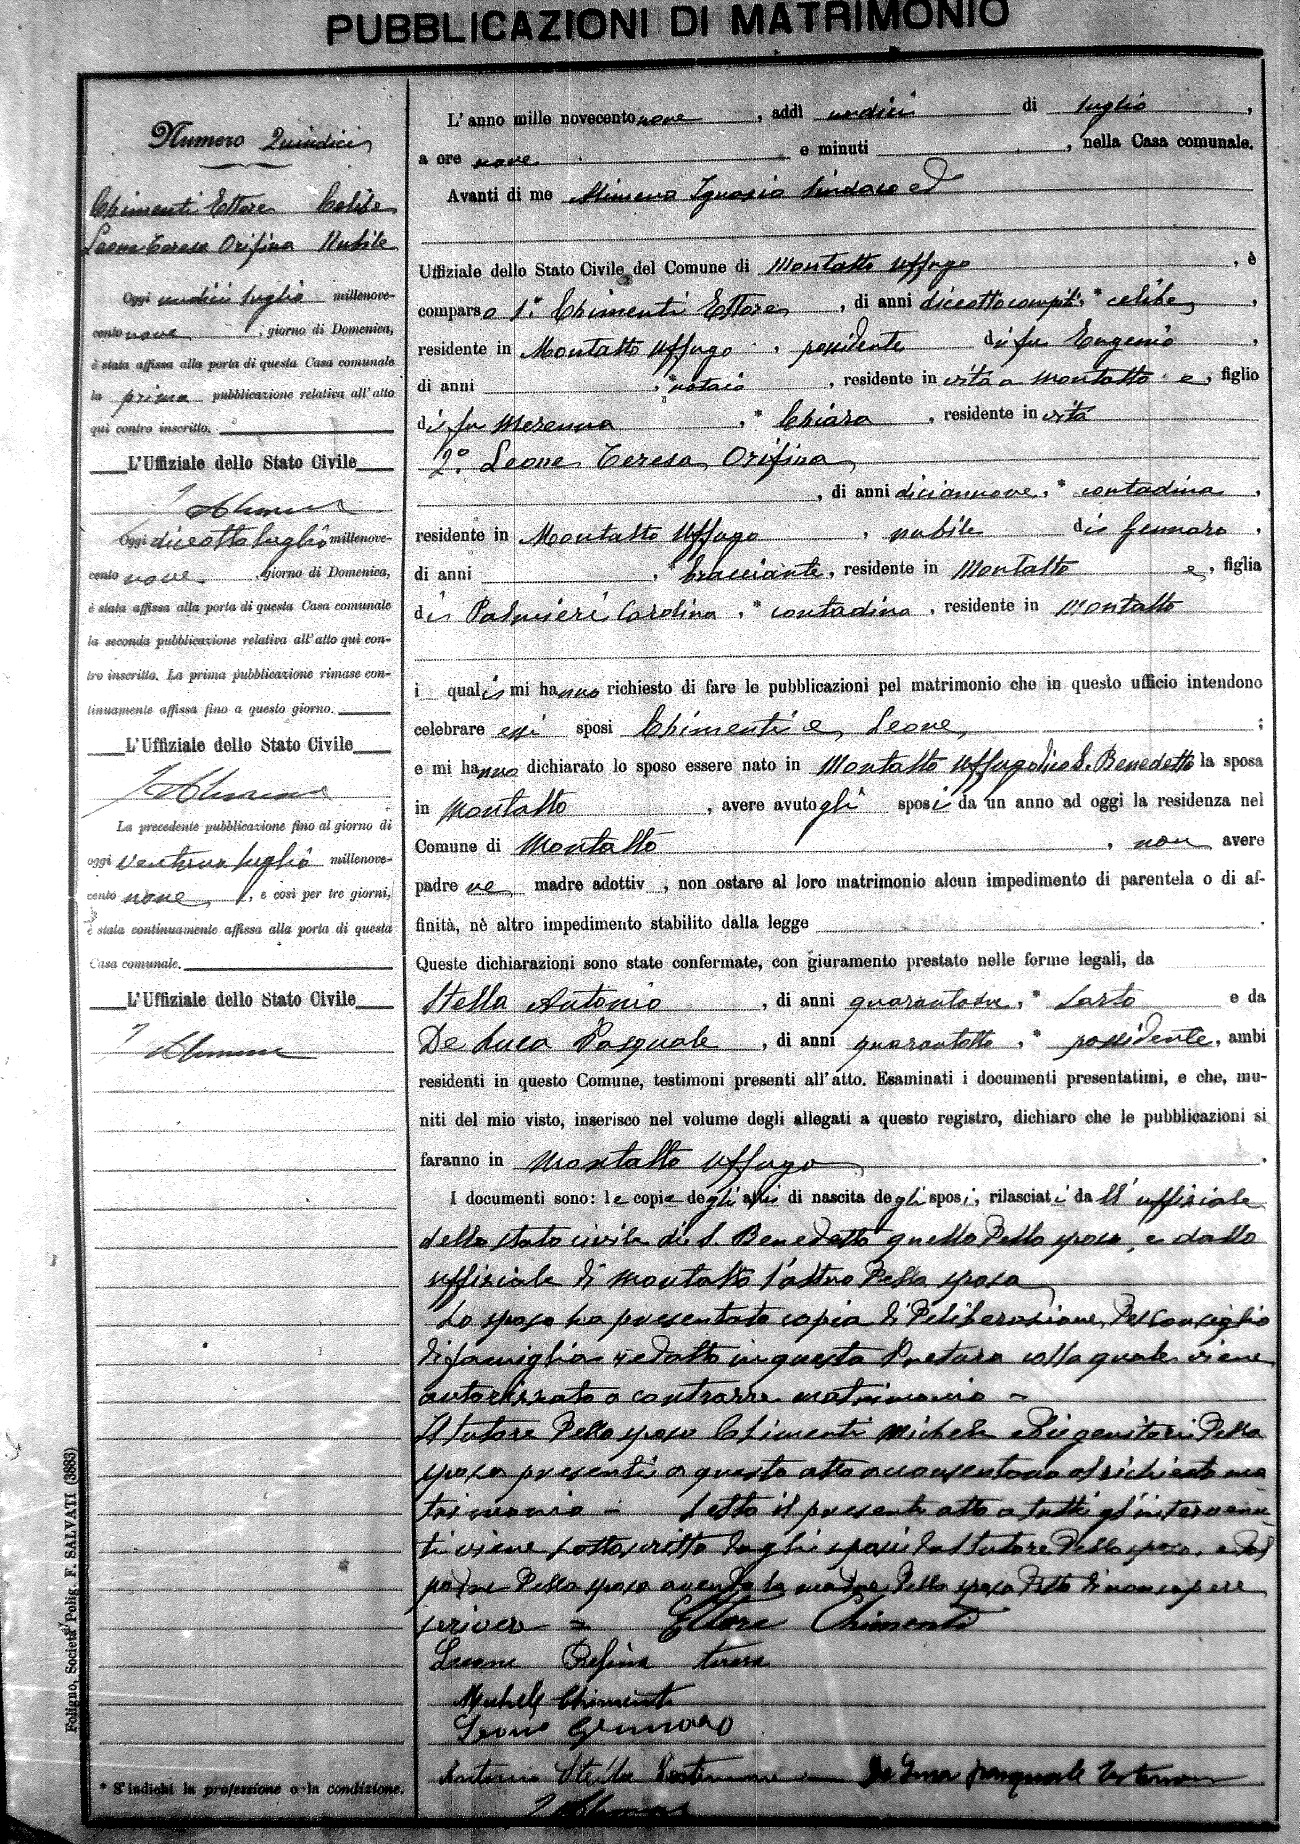 PUBBLICAZIONI DI MATRIMONIO
Numero Quindici
Chimenti Ettore Celibe
Leone Teresa Orifina Nubile
Oggi undici luglio millenove-
cento nove, giorno di Domenica,
è stata affissa alla porta di questa Casa comunale
la prima pubblicazione relativa all'atto
qui contro inscritto.
L'Uffiziale dello Stato Civile
Oggi diciotto luglio millenove-
cento nove, giorno di Domenica,
è stata affissa alla porta di questa Casa comunale
la seconda pubblicazione relativa all'atto qui con-
tro inscritto. La prima pubblicazione rimase con-
tinuamente affissa fino a questo giorno.
L'Uffiziale dello Stato Civile
La precedente pubblicazione fino al giorno di
oggi ventuno luglio millenove-
cento nove, e così per tre giorni,
è stata continuamente affissa alla porta di questa
Casa comunale.
L'Uffiziale dello Stato Civile
* S'indichi la professione o la condizione.
Foligno, Società Polig. F. SALVATI (3883)
L'anno mille novecento nove, addì undici di luglio,
a ore nove e minuti , nella Casa comunale.
Avanti di me Ignazio Sindaco ed
Uffiziale dello Stato Civile del Comune di Montalto Uffugo, è
comparso 1° Chimenti Ettore, di anni diciotto compiti, * celibe,
residente in Montalto Uffugo, possidente di fu Eugenio,
di anni , * notaio, residente in vita a Montalto e, figlio
di fu Merenna, * Chiara, residente in vita
2° Leone Teresa Orifina
, di anni diciannove, * contadina,
residente in Montalto Uffugo, nubile di Gennaro,
di anni , * bracciante, residente in Montalto e, figlia
di Palmieri Carolina, * contadina, residente in Montalto
i quali mi hanno richiesto di fare le pubblicazioni pel matrimonio che in questo ufficio intendono
celebrare essi sposi Chimenti e Leone;
e mi hanno dichiarato lo sposo essere nato in Montalto Uffugo S. Benedetto la sposa
in Montalto, avere avuto gli sposi da un anno ad oggi la residenza nel
Comune di Montalto, non avere
padre ne madre adottiv , non ostare al loro matrimonio alcun impedimento di parentela o di af-
finità, nè altro impedimento stabilito dalla legge.
Queste dichiarazioni sono state confermate, con giuramento prestato nelle forme legali, da
Stella Antonio, di anni , * sarto e da
De Luca Pasquale, di anni quarantotto, * possidente, ambi
residenti in questo Comune, testimoni presenti all'atto. Esaminati i documenti presentatimi, e che, mu-
niti del mio visto, inserisco nel volume degli allegati a questo registro, dichiaro che le pubblicazioni si
faranno in Montalto Uffugo.
I documenti sono: le copie degli atti di nascita degli sposi, rilasciati dall'uffiziale
dello stato civile di S. Benedetto quello dello sposo, e dallo
uffiziale di Montalto l'altro della sposa
Lo sposo ha presentato copia di deliberazione del Consiglio
di famiglia redatto in questa Pretura colla quale viene
autorizzato a contrarre matrimonio -
Il tutore dello sposo Chimenti Michele ed i genitori della
sposa presenti a questo atto acconsentono al richiesto ma
trimonio - Letto il presente atto a tutti gl'intervenu
ti viene sottoscritto dagli sposi dal tutore dello sposo, e dal
padre della sposa avendo la madre della sposa detto di non sapere
scrivere = Ettore Chimenti
Leone Orifina Teresa
Michele Chimenti
Leone Gennaro
Antonio Stella Testimone De Luca Pasquale Testimone